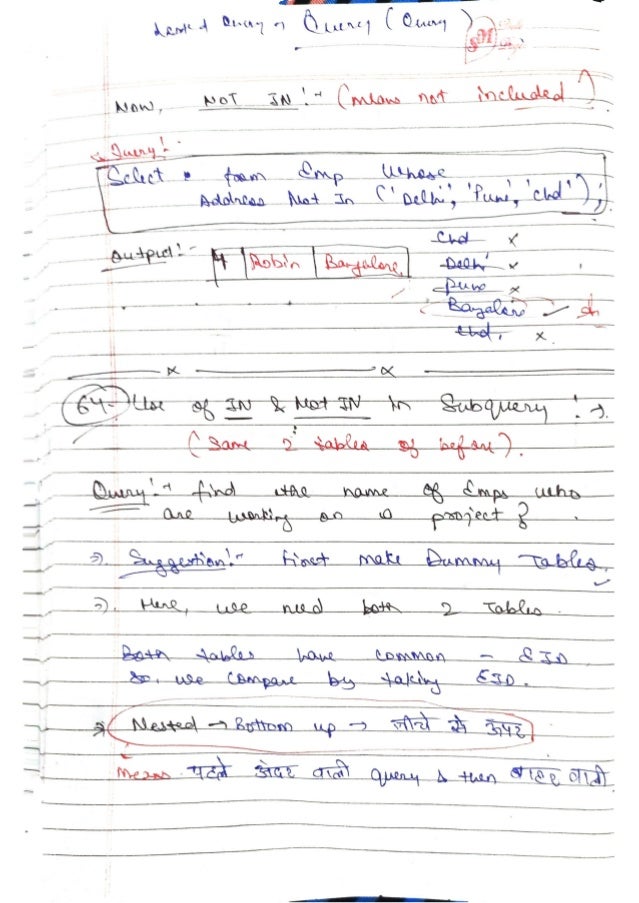 Query ( Query )
Now, NOT IN :- (means not included)
Query :-
Select * from Emp Whose
Address Not In ('Delhi', 'Pune', 'Chd');
Output :- 4 Robin Bangalore
Chd x
Delhi x
Pune x
Bangalore ✓
Chd. x
64- Use of IN & Not IN in Subquery :→
( Same 2 tables of before ).
Query :→ find the name of Emps who
are working on a project ?
⇒. Suggestion :- First make Dummy Tables.
⇒. Here, we need both 2 Tables.
Both tables have common - EID
So, we compare by taking EID.
Nested → Bottom up → नीचे से ऊपर
means पहले अंदर वाली query & then बाहर वाली